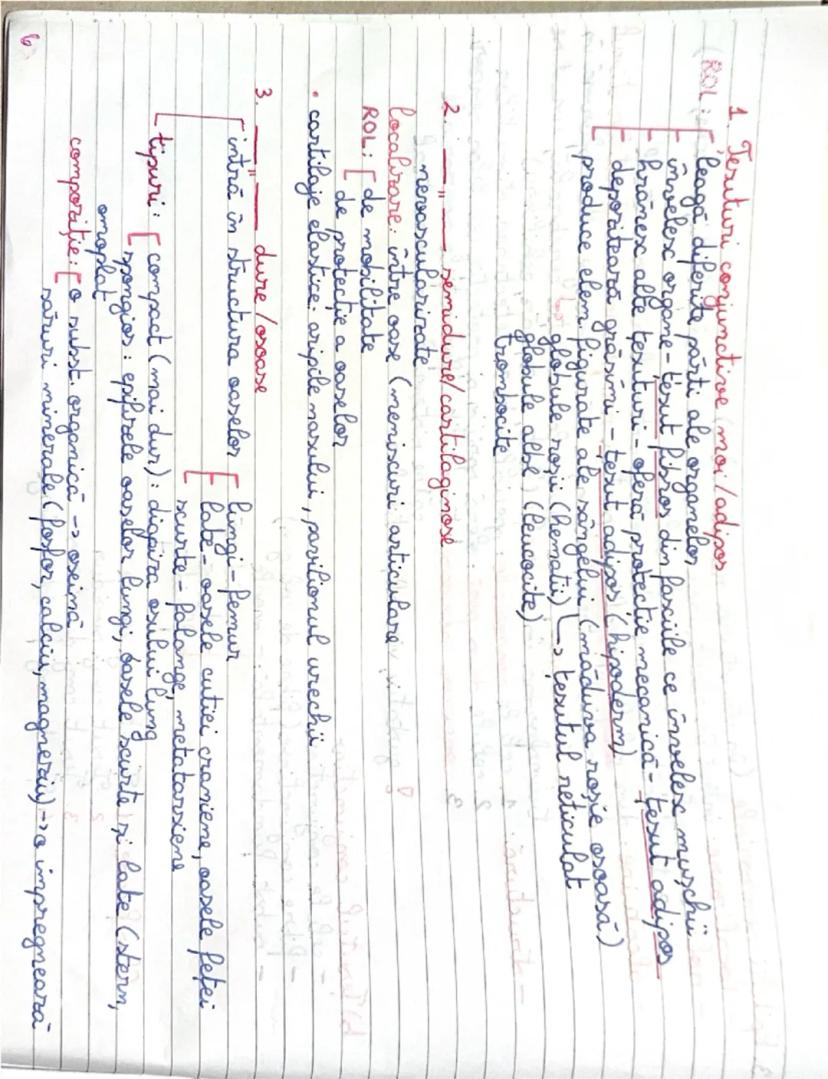 1. Țesuturi conjunctive moi/adipos
(ROL: leagă diferite părți ale organelor
învelesc organe - țesut fibros din fasciile ce învelesc mușchii
hrănesc alte țesuturi - oferă protecție mecanică - țesut adipos
depozitează grăsimi - țesut adipos (hipoderm)
produce elem. figurate ale sângelui (măduva roșie osoasă)
globule roșii (hematii) ↳ țesutul reticulat
globule albe (leucocite)
trombocite
2. —"— semidure/cartilaginoase
nevascularizate
localizare: între oase (meniscuri articulare)
ROL: [ de mobilitate
de protecție a oaselor
• cartilaje elastice: aripile nasului, pavilionul urechii
3. —"— dure/osoase
intră în structura oaselor [ lungi - femur
late - oasele cutiei craniene, oasele feței
scurte - falange, metatarsiene
tipuri: [ compact (mai dur): diafiza osului lung
spongios: epifizele oaselor lungi, oasele scurte și late (stern,
omoplat
compoziție: [ o subst organică → oseină
săruri minerale (fosfor, calciu, magneziu) → o impregnează
6